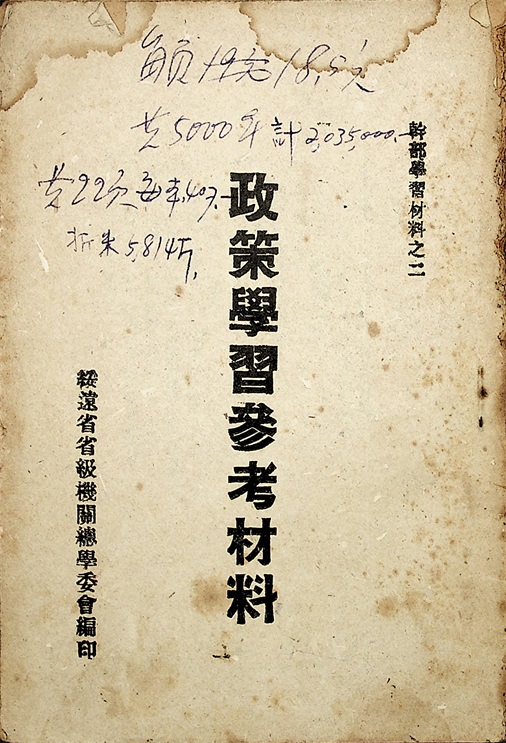 每頁 18.5元
共5000本 計2,035,000.-
共22页每本,407.-
折米5,814斤,
幹部學習材料之二
政策學習參考材料
綏遠省省級機關總學委會編印